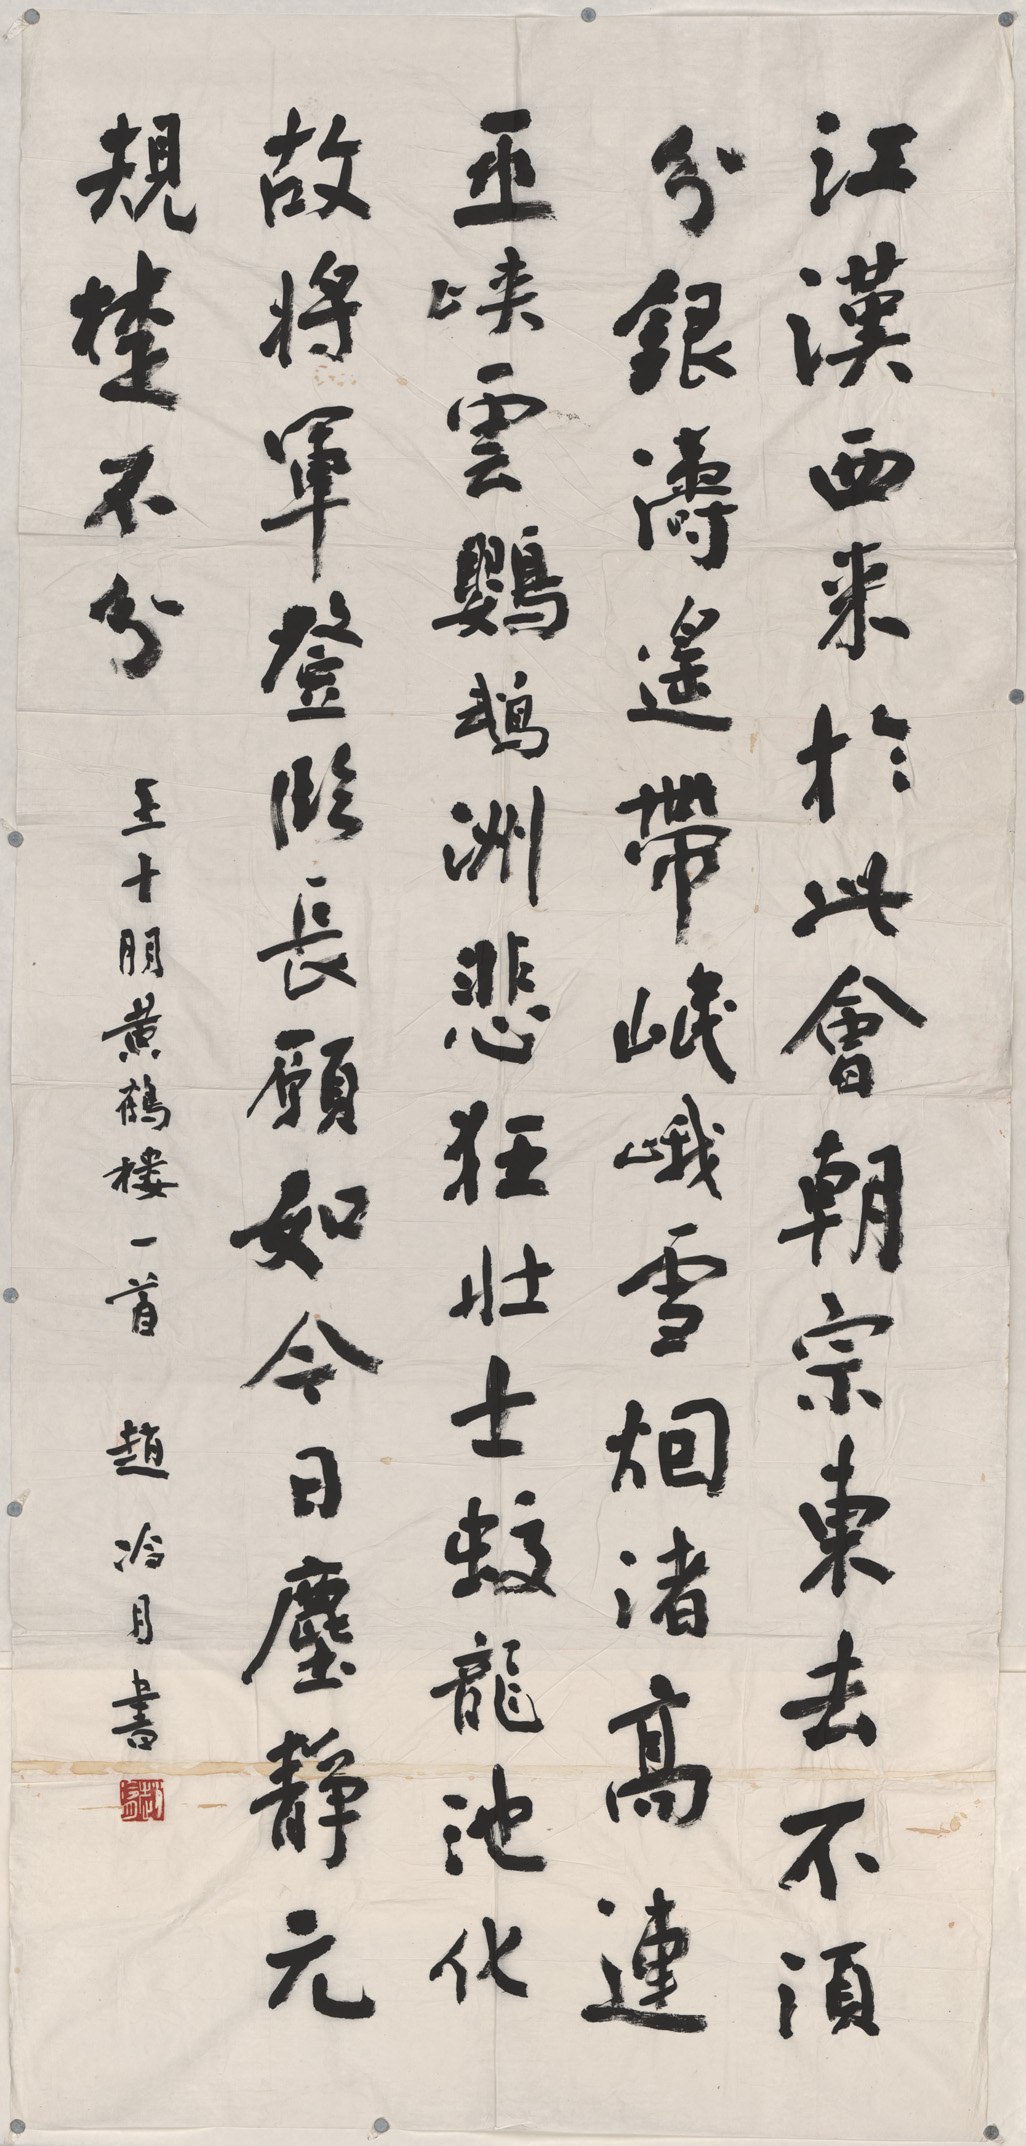 江漢西来於此會朝宗東去不須
分銀濤遙帶岷峨雪烟渚高連
巫峡雲鸚鵡洲悲狂壯士蛟龍池化
故將軍登臨長願如今日塵靜元
規楚不分
王十朋黄鶴楼一首 趙冷月書